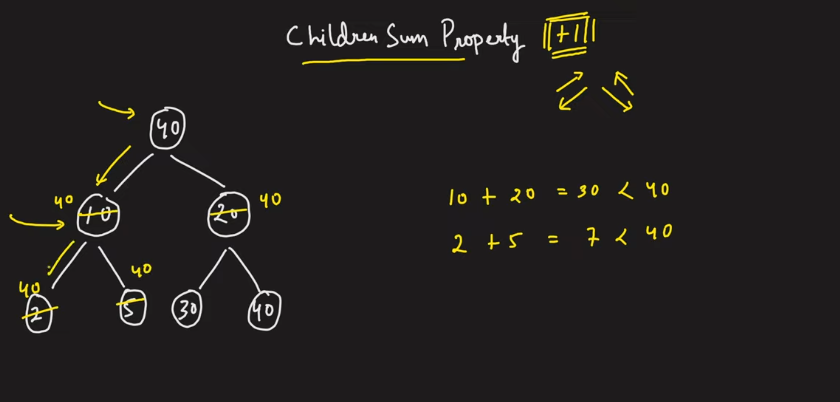 Children Sum Property +1
40
40 10 20 40
40 2 40 5 30 40
10 + 20 = 30 < 40
2 + 5 = 7 < 40